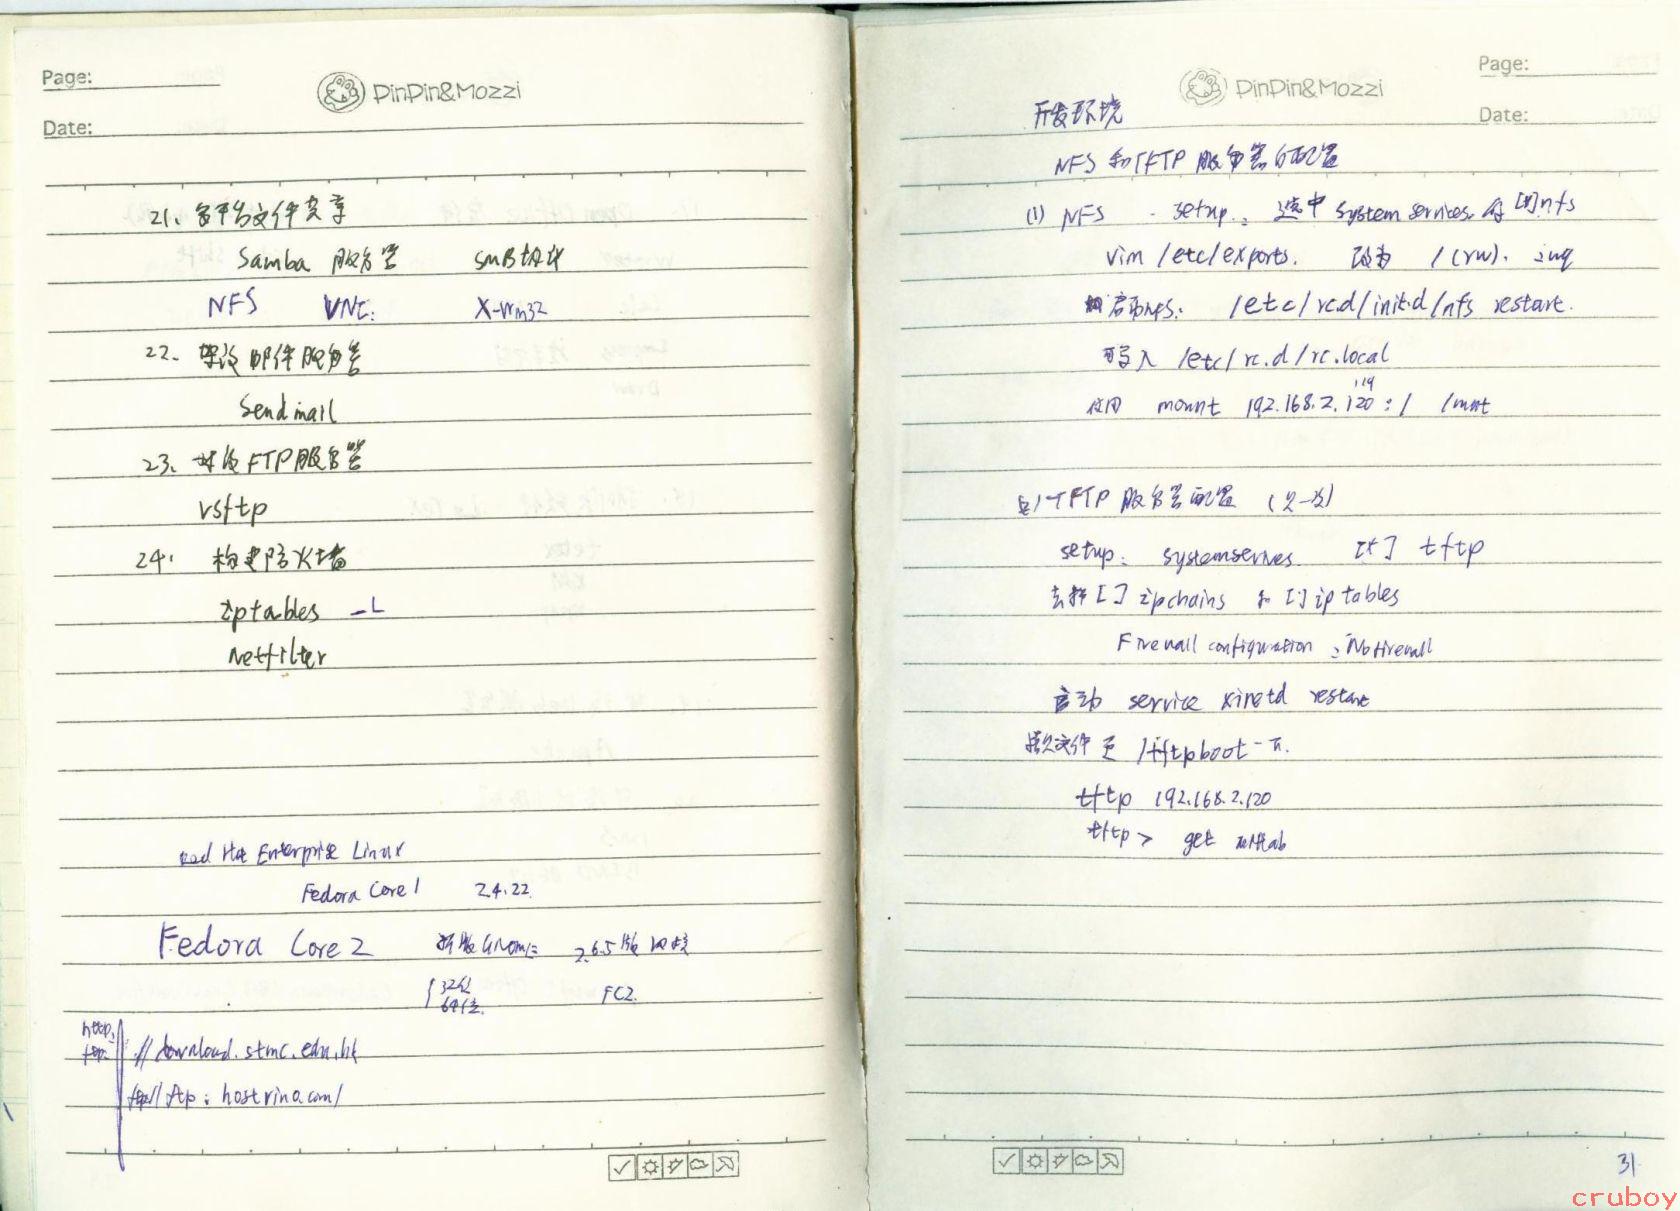 Page:
PinPin&Mozzi
Date:
21、多平台文件共享
Samba 服务器 SMB协议
NFS VNC: X-Win32
22. 架设邮件服务器
Sendmail
23、架设FTP服务器
vsftp
24. 构建防火墙
iptables -L
Netfilter
Red Hat Enterprise Linux
Fedora Core 1 2.4.22
Fedora Core 2 新版GNOME 2.6.5版内核
32位 FC2.
64位
http:
ftp: // download.stmc.edu.hk
ftp// ftp: hostrino.com/
Page:
PinPin&Mozzi
Date:
开发环境
NFS和TFTP服务器的配置
(1) NFS setup: 选中 system services 的 [*]nfs
vim /etc/exports. 改为 /(rw). :wq
启动nfs: /etc/rc.d/init.d/nfs restart.
可写入 /etc/rc.d/rc.local
119
使用 mount 192.168.2.120:/ /mnt
TFTP服务器配置
setup: systemservices [*] tftp
去掉[ ] ipchains 和 [ ] iptables
Firewall configuration : No firewall
启动 service xinetd restart
拷文件至 /tftpboot 下.
tftp 192.168.2.120
tftp> get
31
cruboy